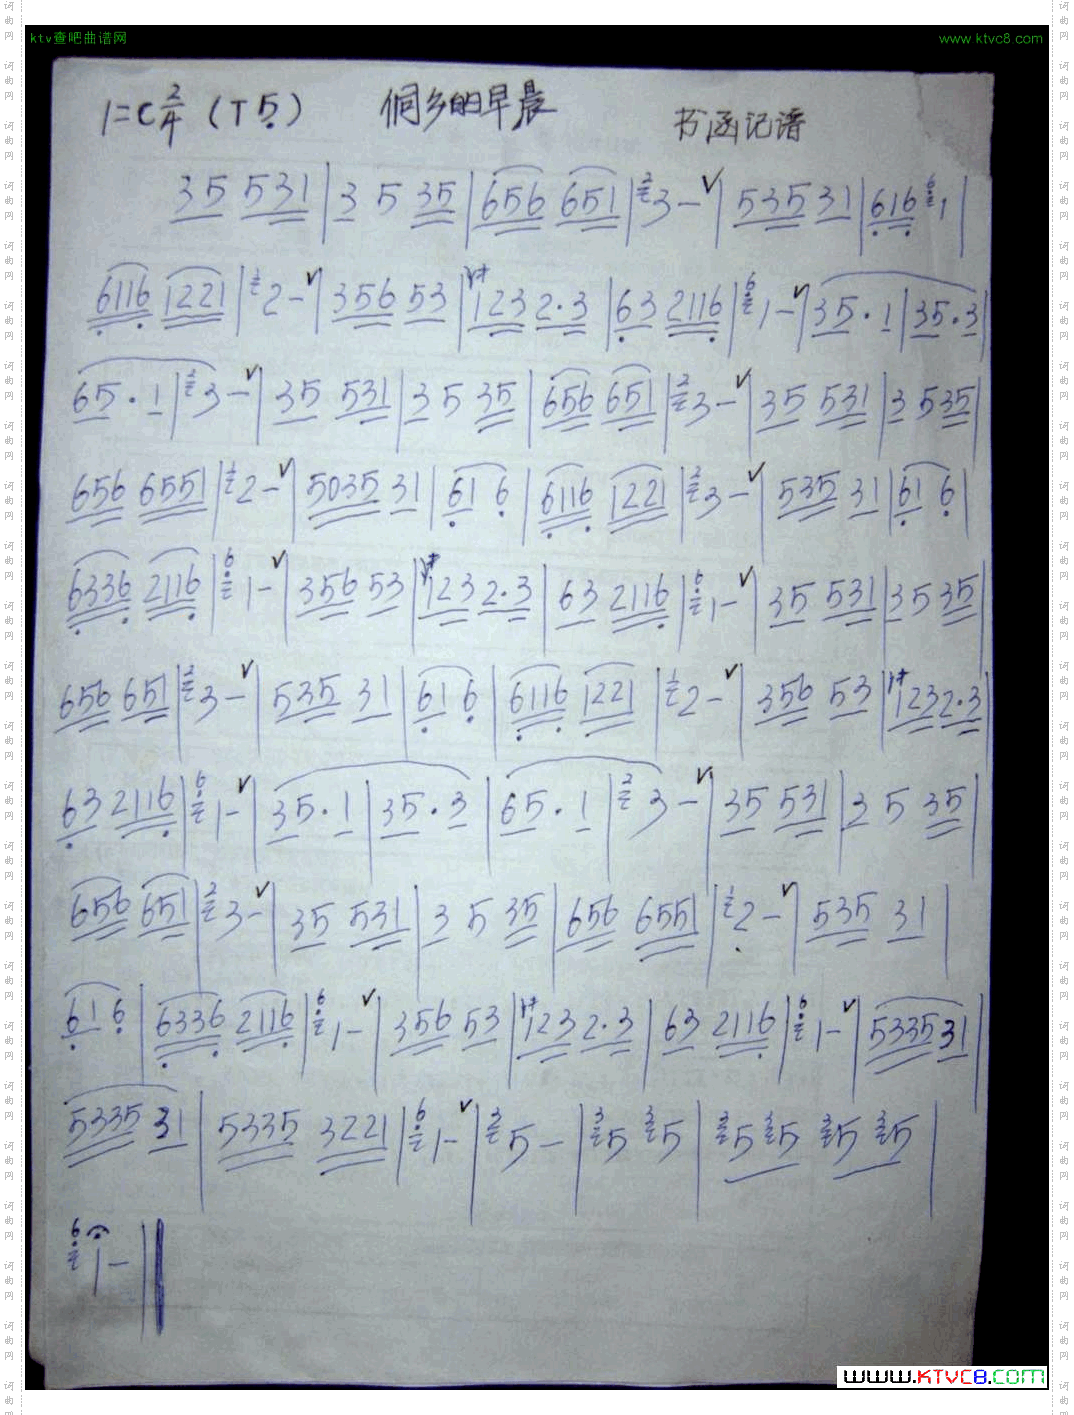 ktv查吧曲谱网 www.ktvc8.com
1=C 2/4 (T 5̣) 侗乡的早晨 书函记谱
35 531 | 3 5 35 | 656 651 | 2 3 - ∨ | 535 31 | 616 6 1 |
6116 1221 | 1 2 - ∨ | 356 53 | 1 123 2·3 | 63 2116 | 6 1 - ∨ | 35·1 | 35·3 |
65·1 | 2 3 - ∨ | 35 531 | 3 5 35 | 656 651 | 2 3 - ∨ | 35 531 | 3 5 35 |
656 6551 | 1 2 - ∨ | 5035 31 | 61 6 | 6116 1221 | 2 3 - ∨ | 535 31 | 61 6 |
6336 2116 | 6 1 - ∨ | 356 53 | 123 2·3 | 63 2116 | 6 1 - ∨ | 35 531 | 3 5 35 |
656 651 | 2 3 - ∨ | 535 31 | 61 6 | 6116 1221 | 1 2 - ∨ | 356 53 | 1 123 2·3 |
63 2116 | 6 1 - ∨ | 35·1 | 35·3 | 65·1 | 2 3 - ∨ | 35 531 | 3 5 35 |
656 651 | 2 3 - ∨ | 35 531 | 3 5 35 | 656 6551 | 1 2 - ∨ | 535 31 |
61 6 | 6336 2116 | 6 1 - ∨ | 356 53 | 1 123 2·3 | 63 2116 | 6 1 - ∨ | 5335 31 |
5335 31 | 5335 3221 | 6 1 - ∨ | 3 5 - | 3 5 3 5 | 3 5 3 5 3 5 3 5 |
6 1 - ‖
www.KTVC8.com